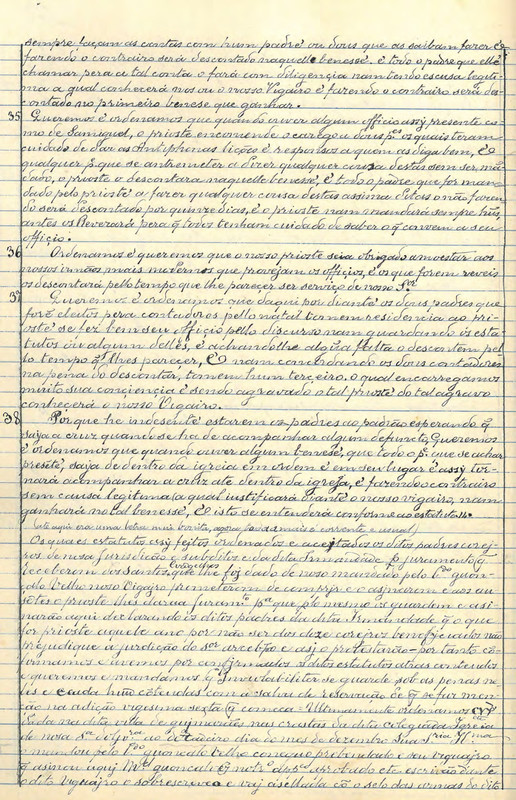 sempre façam as contas com hum padre ou dous que as saibam fazer é
fazendo o contrairo será descontado naquelle benesse. é todo o padre que elle
chamar pera a tal conta o fará com diligençia nam tendo escusa legiti-
ma a qual conhecerá nos ou o nosso Vigairo é fazendo o contrairo será des-
contado no primeiro benesse que ganhar.
35 Queremos é ordenamos que quando ouver algum offiçio assj presente co-
mo de Samiguel, o prioste encomende o carego a dous p.es os quais teram
cuidado de dar as Antiphonas lições é responsos a quem as diga bem, é o
qualquer p. que se antremeter a dizer qualquer cousa destas sem ser mã-
dado, o prioste o descontara naquelle benesse, é todo o padre que for man-
dado pello prioste a fazer qualquer cousa destas assima ditas o não fazen-
do será descontado por quinze dias, é o prioste nam mandará sempre hũs,
antes os Reverará pera q̃ todos tenham cuidado de saber o q̃ convem a seu
offiçio.
36 Ordenamos é queremos que o nosso prioste seia obrigado amoestar aos
nossos irmãos mais modernos que provejam os offiçios, é os que forem reveis
os descontará pello tempo que lhe pareçer ser serviço de nosso S.or
37 Queremos é ordenamos que daqui por diante os dous padres que
forẽ eleitos pera contadores pello natal tomem residencia ao pri-
oste se fez bem seu offiçio pello discurso nam guardando os esta-
tutos ou algum delles, é achandolhe algũa falta o descontem pel-
lo tempo q̃ lhes pareçer, é nam concordando os dous contadores
na pena do descontar, tomem hum terçeiro. o qual encarregamos
muito sua conçiençia é sendo agravado o tal prioste do tal agravo
conhecerá o nosso Vigairo.
38 Porque he indesente estarem os padres ao padrão esperando q̃
saia a cruz quando se ha de acompanhar algum defuncto, Queremos
é ordenamos que quando ouver algum benesse, que todo o p. que se achar
presẽte, saia de dentro da igreia em ordem é em seu lugar é assj tor-
nará acompanhar a cruz até dentro da igreja, é fazendo o contrairo
sem causa legitima (a qual justificará diante o nosso vigairo, nam
ganhará no tal benesse, é isto se entenderá conforme ao estatuto 14.
(até aqui era uma letra mais bonita, agora passa a mais corrente e usual)
Os quaes estatutos assj feitos ordenados e aceptados os ditos padres corej-
ros de nosa jurisdição e subditos e da dita Irmandade p. juramento q̃
receberam dos Santos Evangelhos que lhe foj dado de noso mandado pelo L.do gon-
çalo Velho noso Vigajro prometeram de comprir e o asinaram e aos au-
sẽtes o prioste lhes dara a juram.to p.a que p.lo mesmo os guardem e asi-
narão aqui declarando os ditos padres da dita Irmandade q̃ o que
for prioste aquele ano por não ser dos doze coreiros beneficiados não
prejudique à jurdição do s.or arcebispo e asj o protestarão - por tanto cõ-
formamos e avemos por confirmados os ditos estatutos atras conteudos
e queremos e mandamos q̃ inviolabiliter se guardẽ sob as penas ne-
les e cada hũ conteudas com a salva de reservação de q̃ se fez men-
ção na adição vigesima sexta q̃ começa - Ultimamente ordenamos
dada na dita villa de guimarães nas crastas da dita colegiada igreia
de nosa s.ra
o mandou pelo L.do gonçalo Velho conego prebendado e seu vigajro
q̃ asinou aquj
o dito Vigajro o sobscrevi e vaj asellada cõ o selo das armas do dito